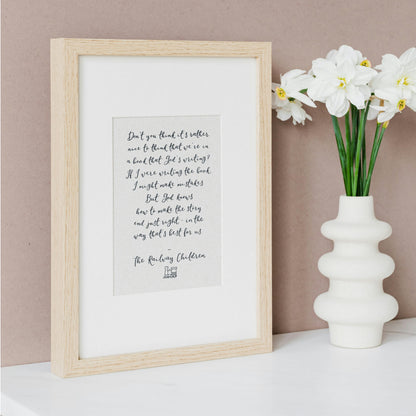 Don't you think it's rather
nice to think that we're in
a book that God's writing?
If I were writing the book,
I might make mistakes.
But God knows
how to make the story
end just right - in the
way that's best for us.
-
The Railway Children